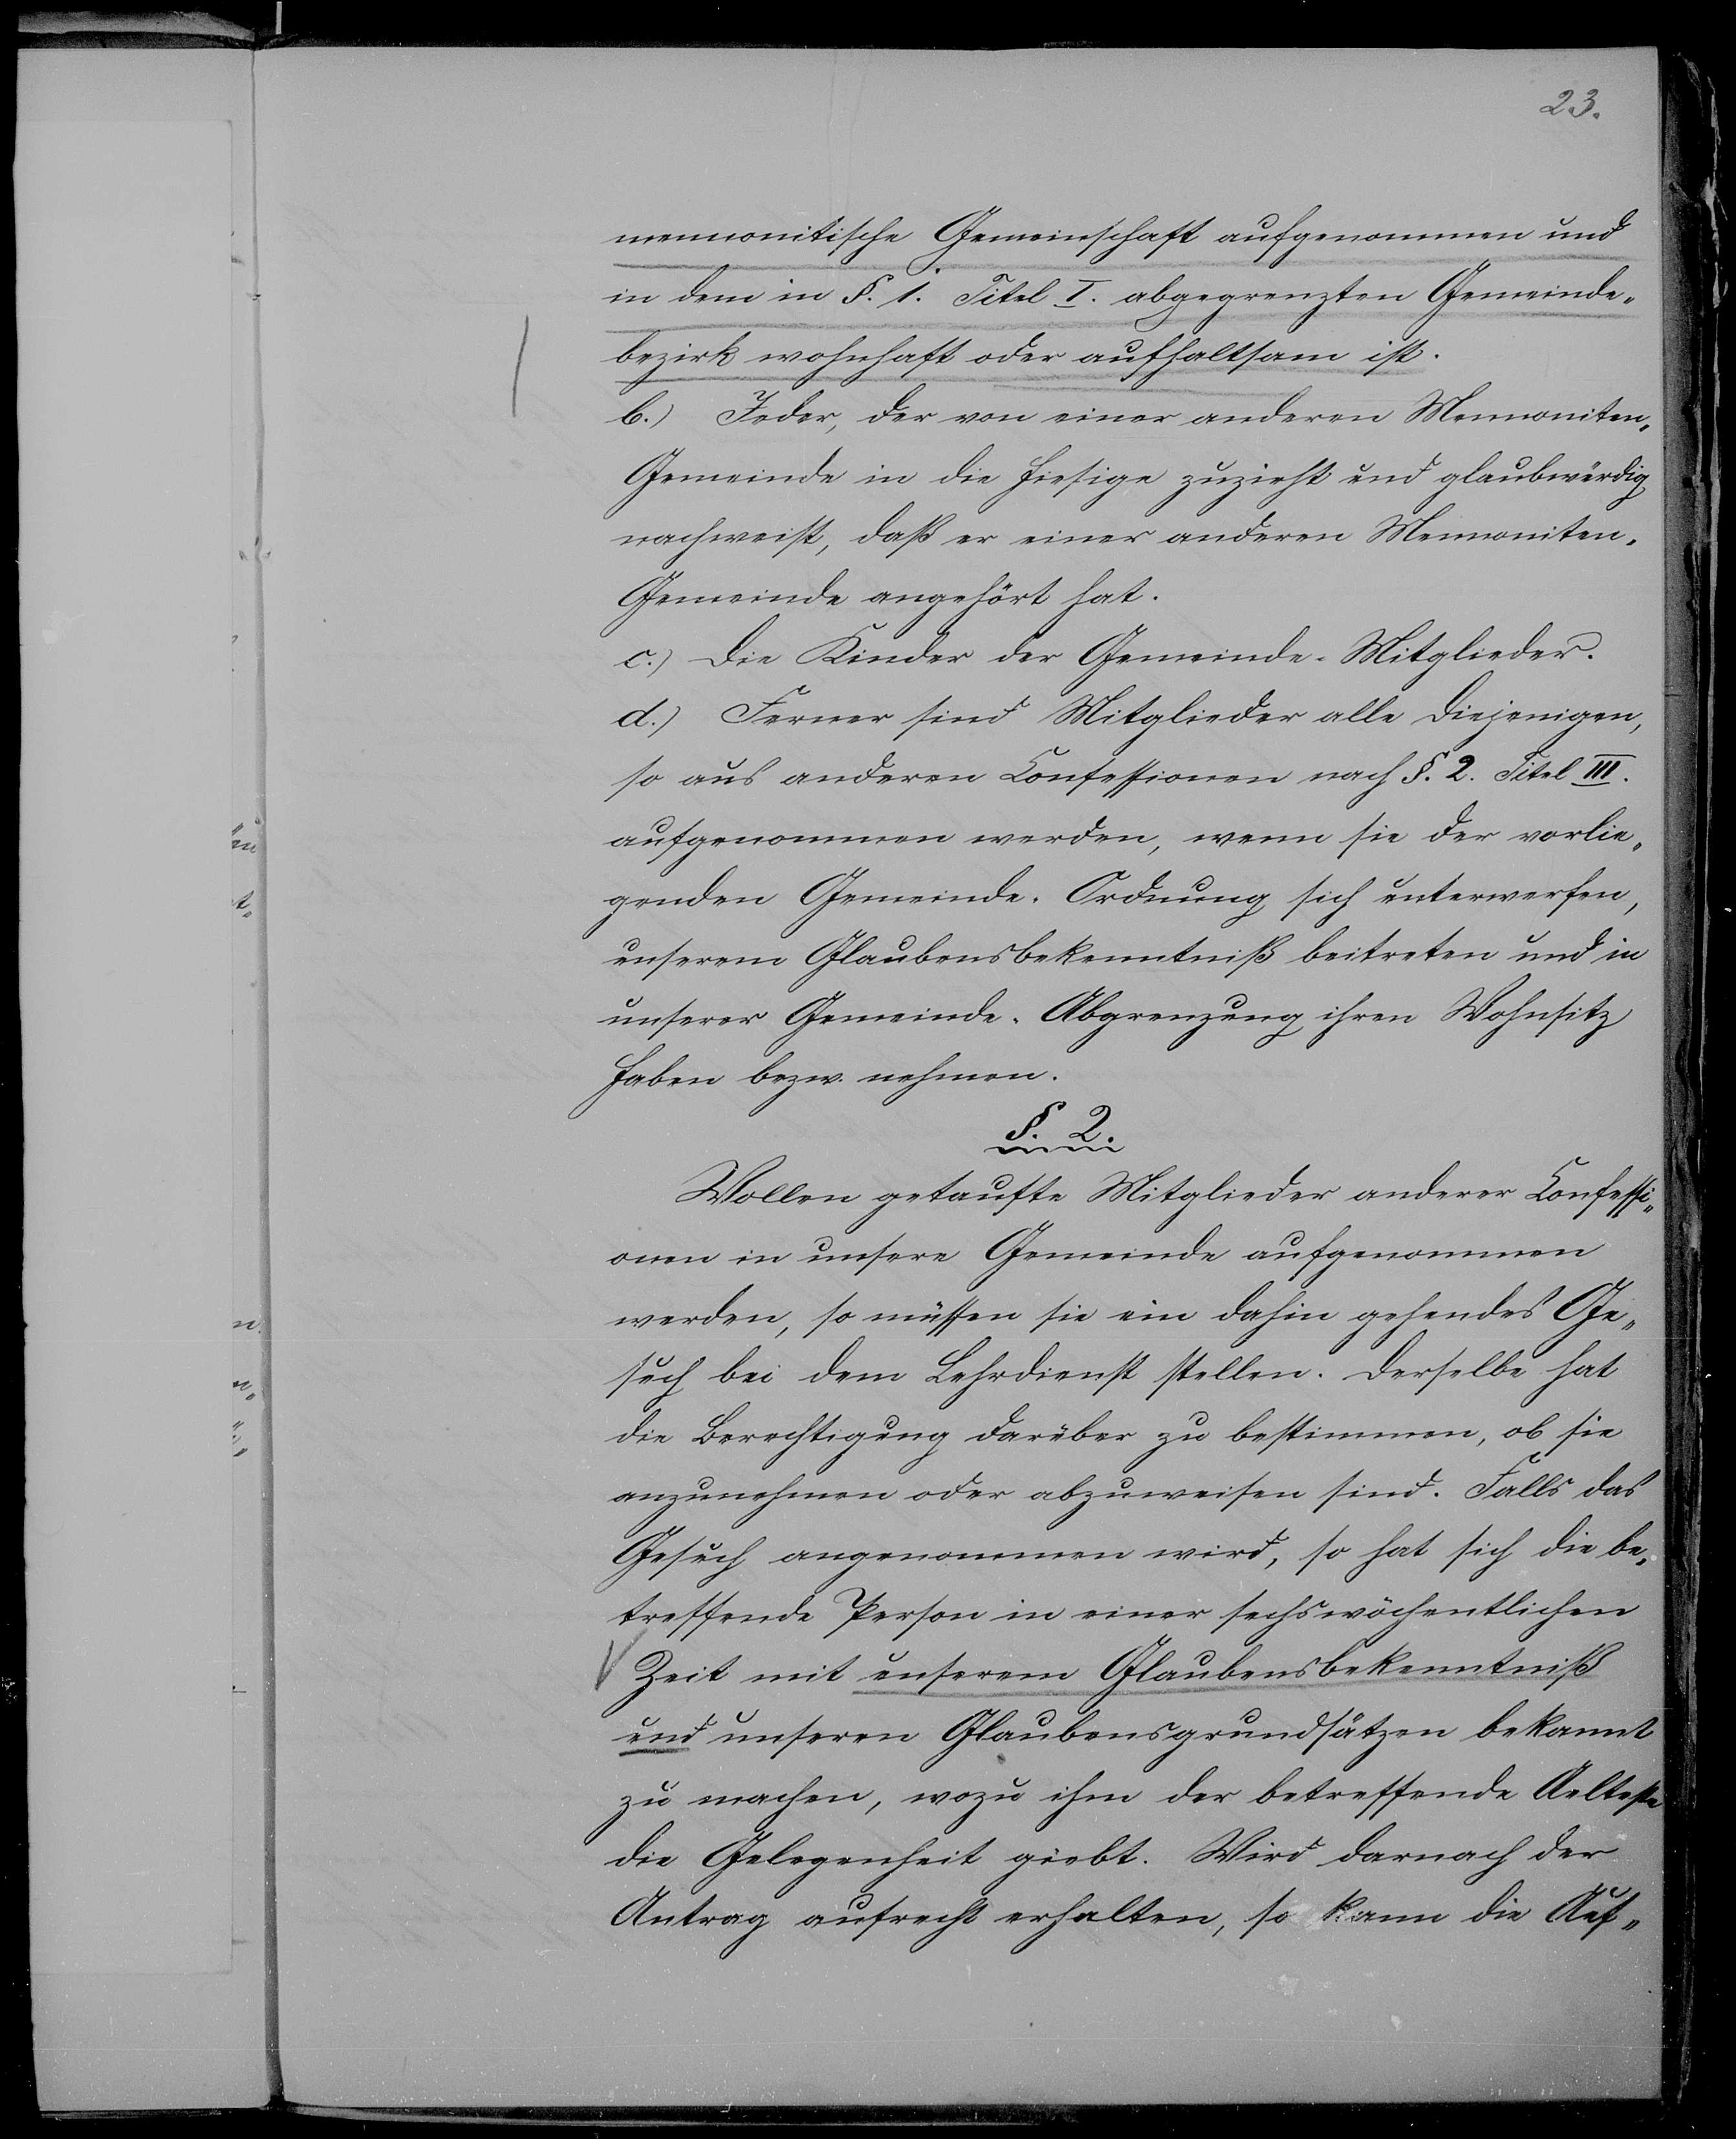 23.
mennonitische Gemeinschaft aufgenommen und
in dem in §. 1. Titel I. abgegrenzten Gemeinde-
bezirk wohnhaft oder aufhaltsam ist.
b.) Jeder, der von einer anderen Mennoniten-
Gemeinde in die hiesige zuzieht und glaubwürdig
nachweist, daß er einer anderen Mennoniten-
Gemeinde angehört hat.
c.) Die Kinder der Gemeinde-Mitglieder.
d.) Ferner sind Mitglieder alle Diejenigen,
so aus anderen Confessionen nach §. 2. Titel III.
aufgenommen werden, wenn sie der vorlie-
genden Gemeinde-Ordnung sich unterwerfen,
unserem Glaubensbekenntniß beitreten und in
unserer Gemeinde-Abgrenzung ihren Wohnsitz
haben bezw. nehmen.
§. 2.
Wollen getaufte Mitglieder anderer Confessi-
onen in unsere Gemeinde aufgenommen
werden, so müssen sie ein dahin gehendes Ge-
such bei dem Lehrdienst stellen. Derselbe hat
die Berechtigung darüber zu bestimmen, ob sie
anzunehmen oder abzuweisen sind. Falls das
Gesuch angenommen wird, so hat sich die be-
treffende Person in einer sechswöchentlichen
Zeit mit unserem Glaubensbekenntniß
und unseren Glaubensgrundsätzen bekannt
zu machen, wozu ihm der betreffende Aelteste
die Gelegenheit giebt. Wird darnach der
Antrag aufrecht erhalten, so kann die Auf-